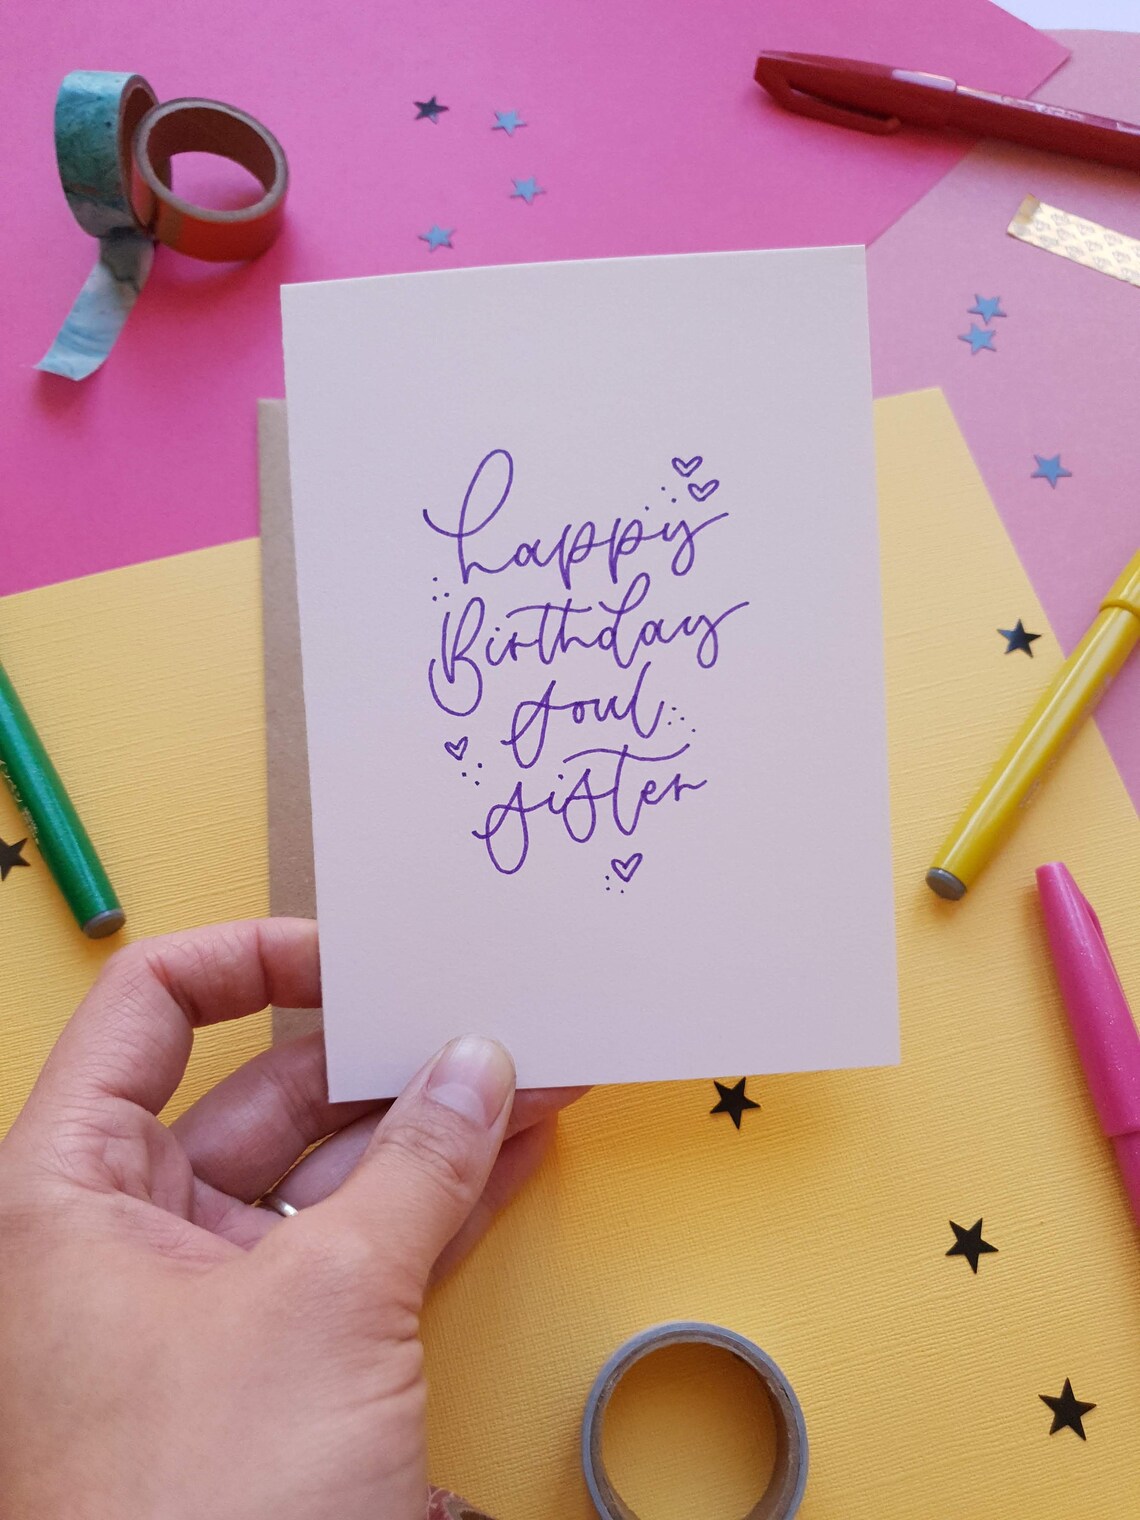 happy
Birthday
soul
sister